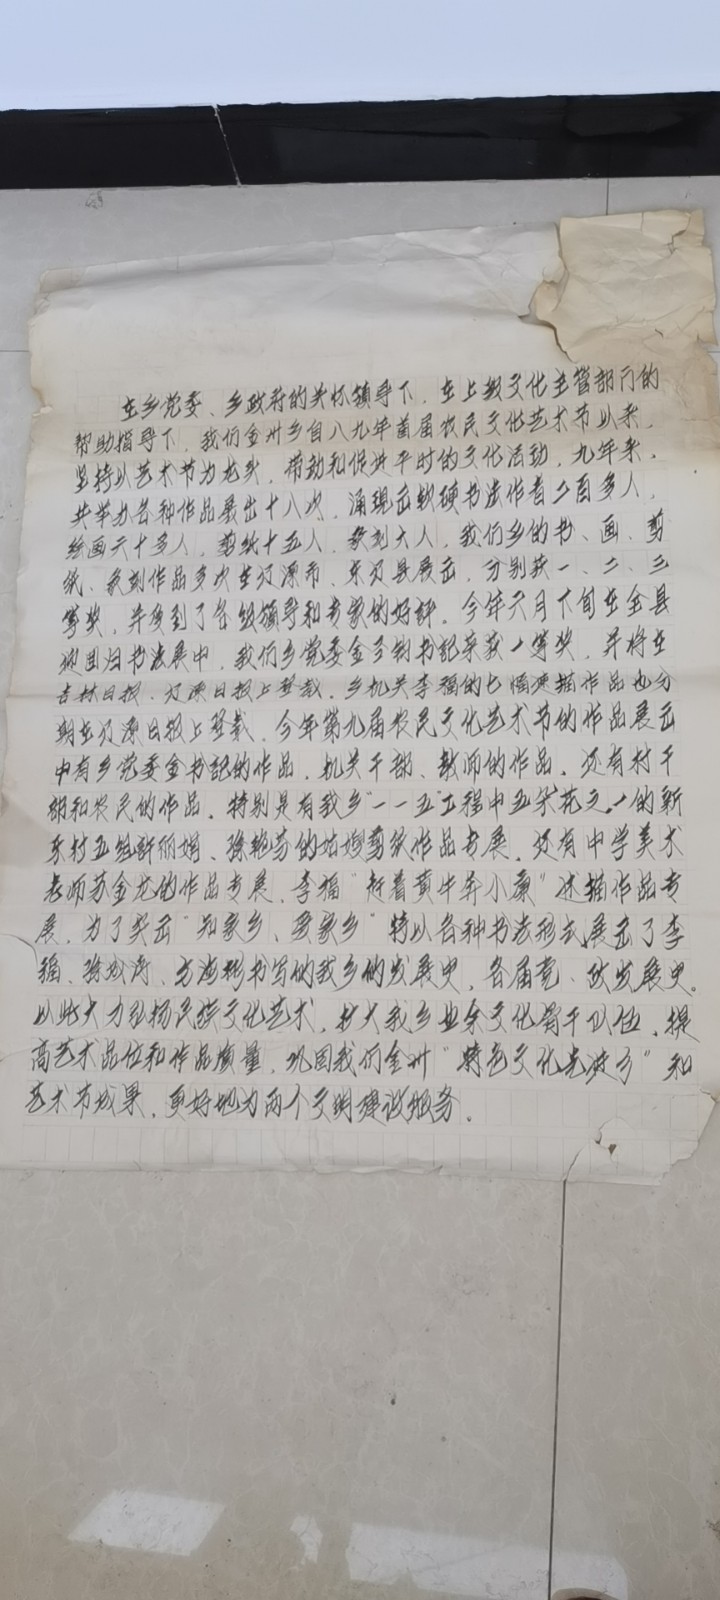 在乡党委、乡政府的关怀领导下，在上级文化主管部门的
帮助指导下，我们金州乡自八九年首届农民文化艺术节以来，
坚持以艺术节为龙头，带动和促进平时的文化活动，九年来，
共举办各种作品展出十八次，涌现出软硬书法作者二百多人，
绘画六十多人，剪纸十五人，篆刻六人，我们乡的书、画、剪
纸、篆刻作品多次在辽源市、东辽县展出，分别获一、二、三
等奖，并受到了各级领导和专家的好评。今年六月下旬在全县
迎回归书法展中，我们乡党委金书记荣获一等奖，并将在
吉林日报、辽源日报上登载，乡机关李福的七幅速描作品也分
期在辽源日报上登载，今年第九届农民文化艺术节的作品展示
中有乡党委金书记的作品，机关干部、教师的作品，还有村干
部和农民的作品。特别是有我乡“一一五”工程中五朵花之一的新
东村五组许丽娟、徐艳芬的姑嫂剪纸作品专展，还有中学美术
老师苏金龙的作品专展，李福“赶着黄牛奔小康”速描作品专
展，为了突出“知家乡、爱家乡”特以各种书法形式展出了李
福、书写的我乡的发展史，各届党、政发展史。
以此大力弘扬民族文化艺术，扩大我乡业余文化骨干队伍，提
高艺术品位和作品质量，巩固我们金州“特色文化先进乡”和
艺术节成果，更好地为两个文明建设服务。